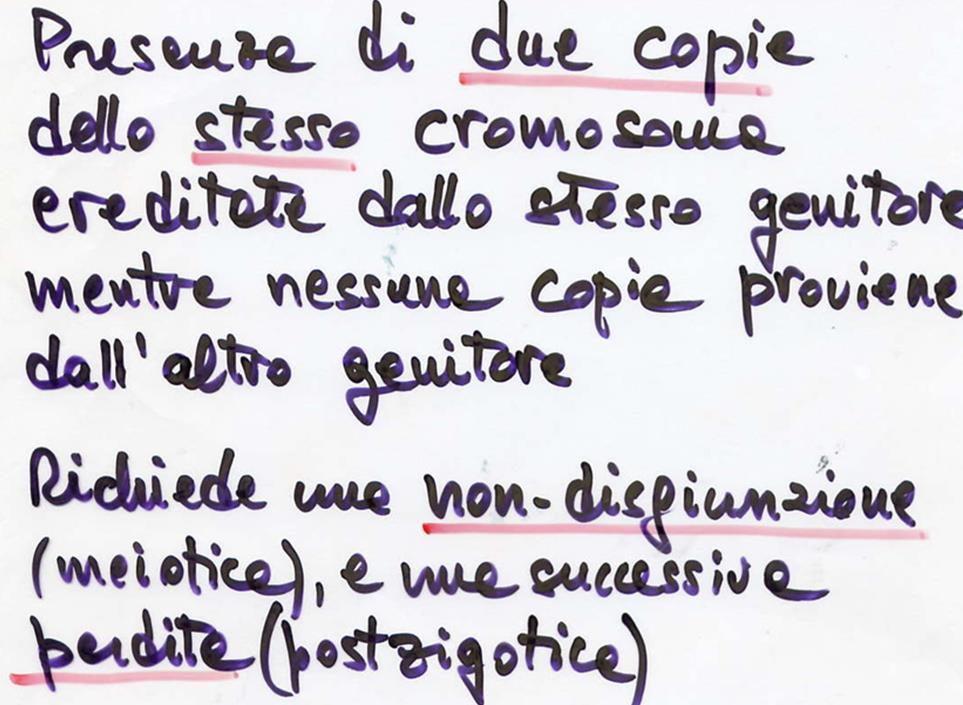 Presenza di due copie
dello stesso cromosoma
ereditate dallo stesso genitore
mentre nessuna copia proviene
dall'altro genitore
Richiede una non-disgiunzione
(meiotica), e una successiva
perdita (postzigotica)